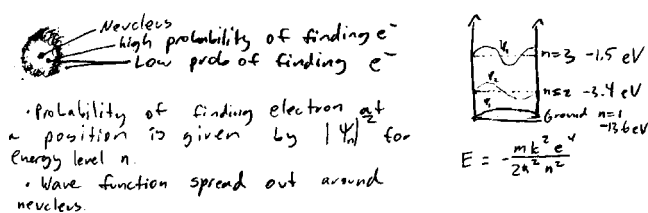 Nevcleus
high probability of finding e⁻
Low prob of finding e⁻
• Probability of finding electron at
a position is given by |Ψₙ|² for
Energy level n.
• Wave function spread out around
nevcleus.
Ψ₃ n=3 -1.5 eV
Ψ₂ n=2 -3.4 eV
Ψ₁ Ground n=1
-13.6 eV
E = - mk²e⁴ / 2ħ²n²